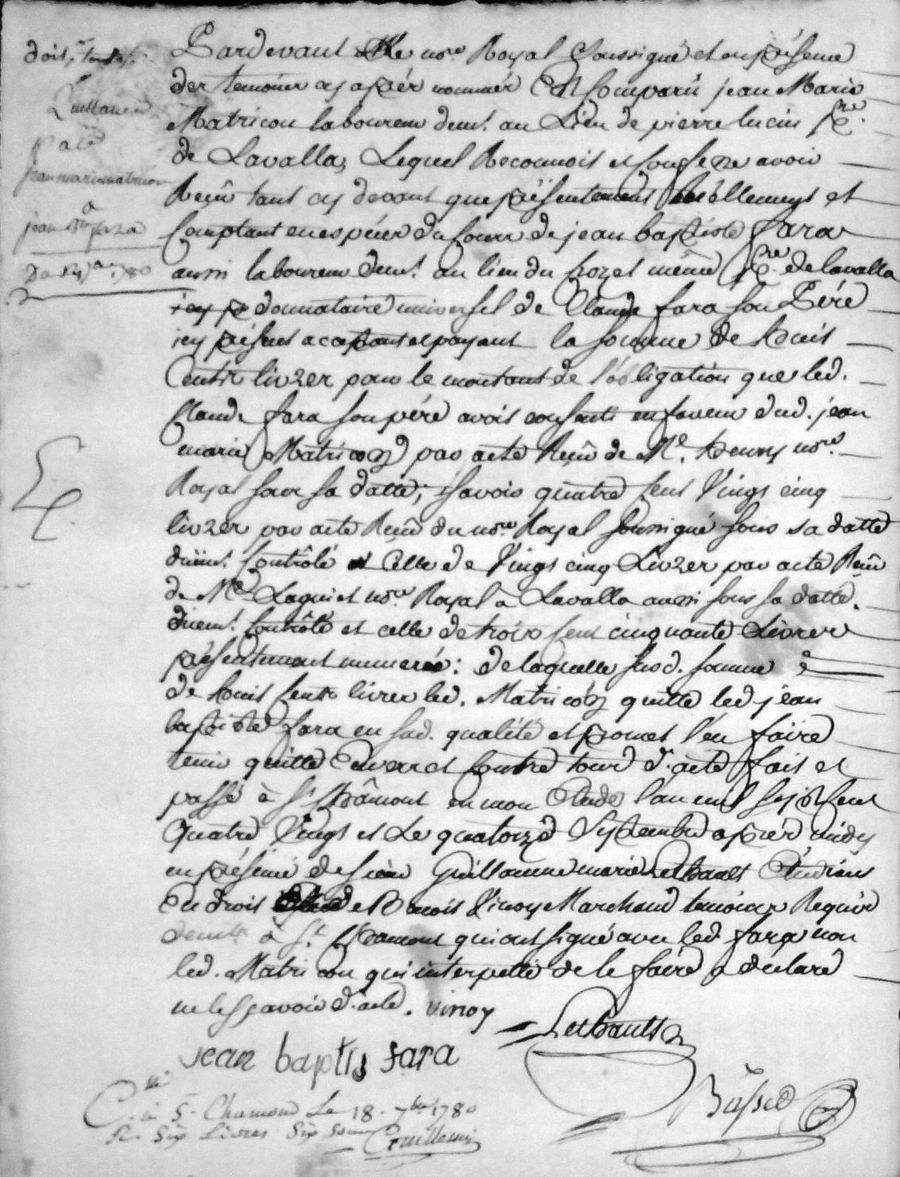 doit, toutes
Quittance
par
jean marie matricon
a
jean Bte fara
Du 14 7bre 1780
Pardevant Me nore Royal soussigné et en présence
des temoins cy après nommés Est Comparû jean Marie
Matricon laboureur demt. au Lieu de pierre lucin pre.
de Lavalla, Lequel Reconnoit et Confesse avoir
Reçû tant cy devant que présentement Réellement et
Comptant en espéces du Cours de jean baptiste fara
aussi laboureur demt. au lieu du Crozet même pre. de lavalla
donnataire universel de Claude fara son Pére
icy présent acceptant et payant la somme de huit
Cents livres pour le montant de l'obligation que led.
Claude fara son pére avoit consenti en faveur dud. jean
marie Matricon par acte Reçû de Me. henry nore
Royal sous sa datte, sçavoir quatre Cent Vingt cinq
livres par acte Reçû du nore. Royal soussigné sous sa datte
duëmt. Contrôlé et Celle de Vingt cinq Livres par acte Reçû
de Me Laquiet nore Royal à Lavalla aussi sous sa datte
duemt. Contrôlé et celle de trois Cent cinquante Livres
présentement numerée: de laquelle susd. somme
de huit Cents livres led. Matricon quitte led jean
baptiste fara en sad. qualité et promet l'en faire
tenir quitte Envers et Contre tous d'acte fait et
passé à St Châmont en mon Etude l'an mil sept Cent
Quatre Vingt et Le quatorze Septembre après midy
en présence de sieur Guillaume marie Lethault Etudiant
En droit et Benoit Vinoy Marchand temoins Requis
demts à St Chamont qui ont signé avec led. fara non
led. Matricon qui interpellé de le faire a déclaré
ne le sçavoir d'acte. vinoy
Lethault
jean baptis fara
C. lé à St. Chamond Le 18. 7bre 1780
R. Six Livres Six sous Guillemin